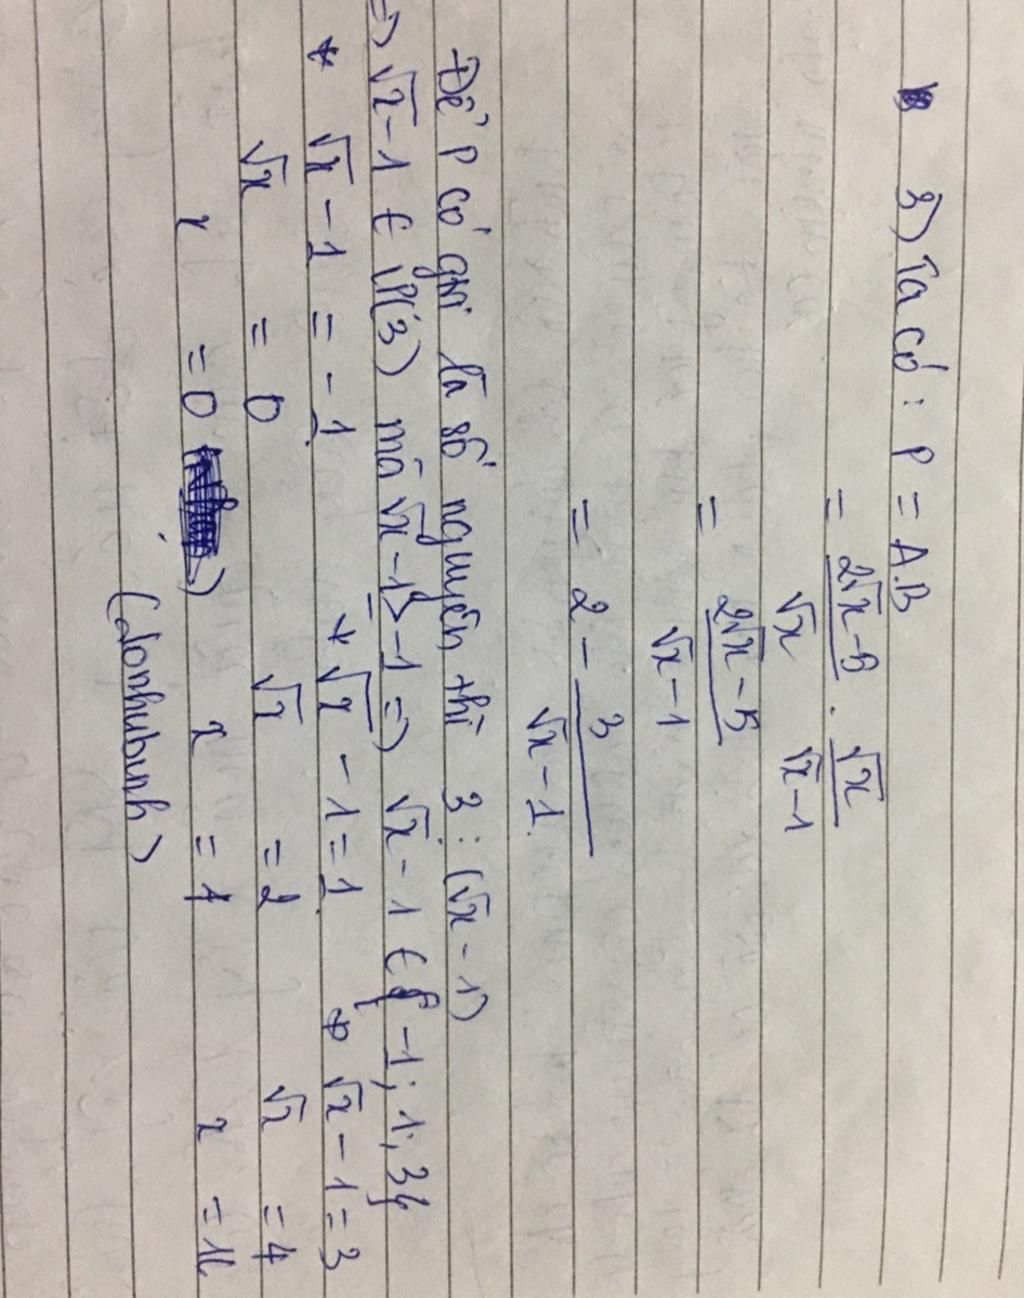 3) Ta có: P = A.B
= \frac{2√x-5}{√x} . \frac{√x}{√x-1}
= \frac{2√x-5}{√x-1}
= 2 - \frac{3}{√x-1}
Để P có giá trị là số nguyên thì 3 ⋮ (√x-1)
=) √x-1 ∈ Ư(3) mà √x-1 ≥ -1 =) √x-1 ∈ { -1; 1; 3}
* √x-1 = -1 * √x-1=1 * √x-1=3
√x = 0 √x = 2 √x = 4
x = 0 x = 4 x = 16
(donhubinh)